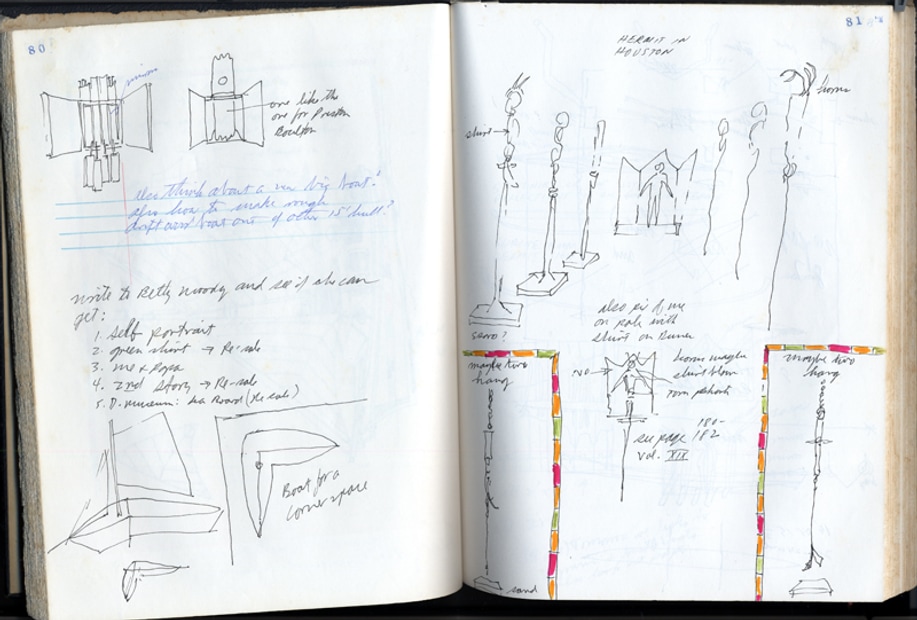 80
one like the
one for Preston
Boulton
also think about a very big boat!
also how to make rough
driftwood boat one of other 15' hull?
write to Betty Moody and see if she can
get:
1. self portrait
2. green shirt → Re-sale
3. me & Papa
4. 2nd story → Re-sale
5. D. museum: Road (Re sale)
Boat for a
corner space
81
HERMIT IN
HOUSTON
shirt
horns
also pix of me
on pole with
shirt on Burner
maybe two
hang
NO
horns maybe
shirt blown
Tom
180-
see page 182
vol. XIX
maybe two
hang
sand